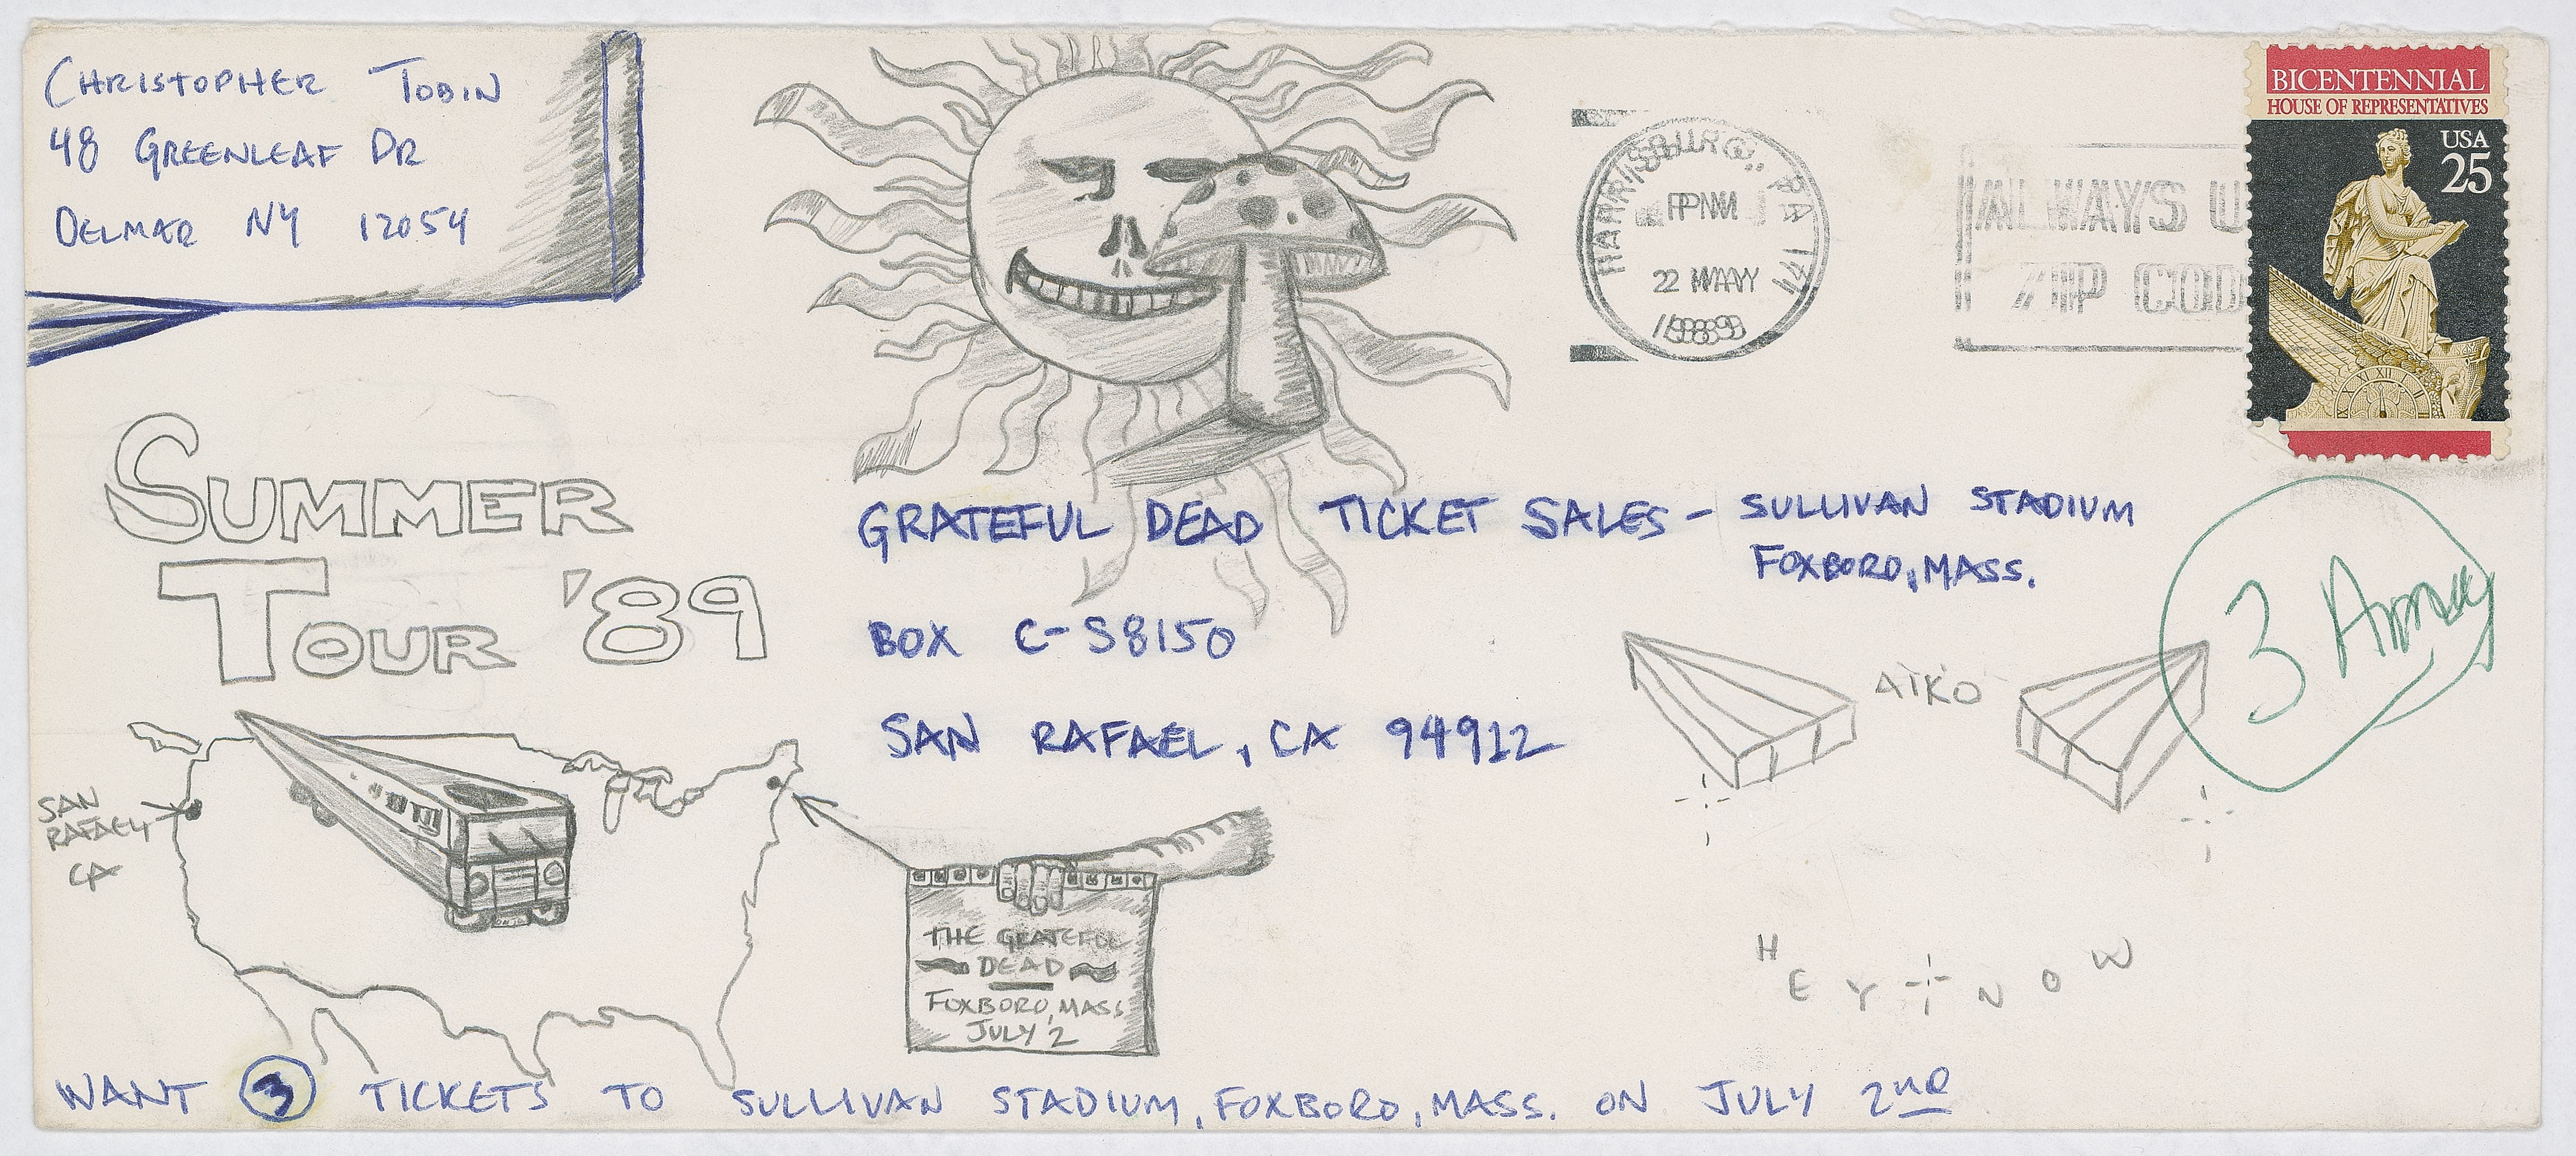 CHRISTOPHER TOBIN
48 GREENLEAF DR
DELMAR NY 12054
HARRISBURG, PA 171
PM
22 MAY
1989
ALWAYS U
ZIP COD
BICENTENNIAL
HOUSE OF REPRESENTATIVES
USA
25
SUMMER
TOUR '89
GRATEFUL DEAD TICKET SALES - SULLIVAN STADIUM
FOXBORO, MASS.
BOX C-S8150
SAN RAFAEL, CA 94912
3
AIKO
SAN
RAFAEL
CA
THE GRATEFUL
DEAD
FOXBORO, MASS
JULY 2
HEY NOW
WANT 3 TICKETS TO SULLIVAN STADIUM, FOXBORO, MASS. ON JULY 2ND